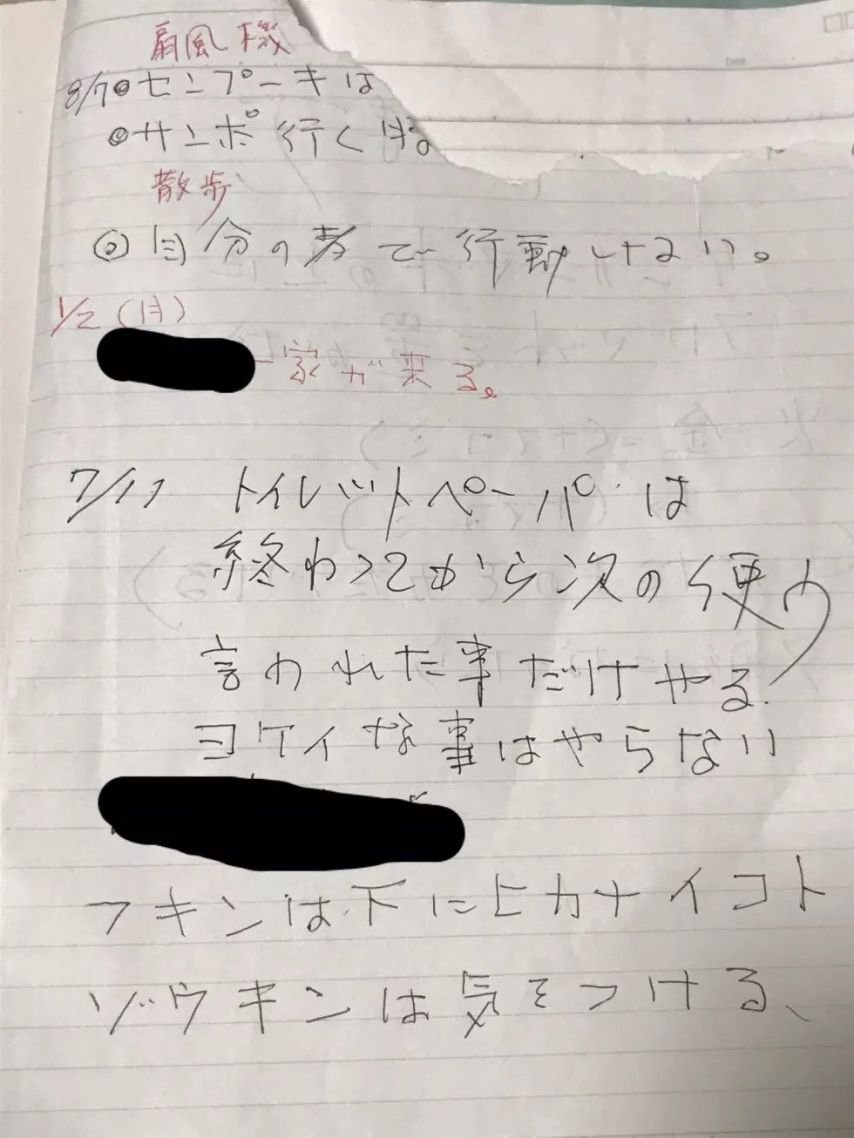 扇風機
8/7◎センプーキは
◎サンポ行く時。
散歩
◎自分の考で行動しない。
1/2(月)
一家が来る。
7/11 トイレットペーパは
終わってから次の使う
言われた事だけやる
ヨケイな事はやらない
フキンは下にヒカナイコト
ゾウキンは気をつける、